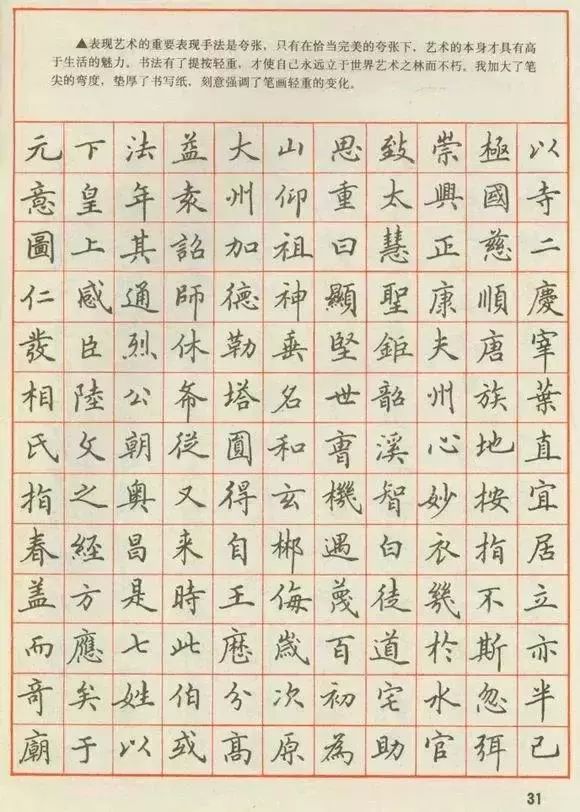 ▲表现艺术的重要表现手法是夸张,只有在恰当完美的夸张下,艺术的本身才具有高
于生活的魅力。书法有了提按轻重,才使自己永远立于世界艺术之林而不朽。我加大了笔
尖的弯度,垫厚了书写纸,刻意强调了笔画轻重的变化。
以寺二慶宰葉直宜居立亦半已
極國慈順唐族地按指不斯忽弭
崇興正康夫州心妙衣幾於水官
致太慧聖鉅韶溪智白徒道宅助
思重曰顯堅世曹機遇蔑百初為
山仰祖神垂名和玄郴侮歲次原
大州加德勒塔圓得自王歷分高
益袁詔師休希從又来時此伯或
法年其通烈公朝奧昌是七姓以
下皇上感臣陸文之經方應矣于
元意圖仁發相氏指春盖而奇廟
31